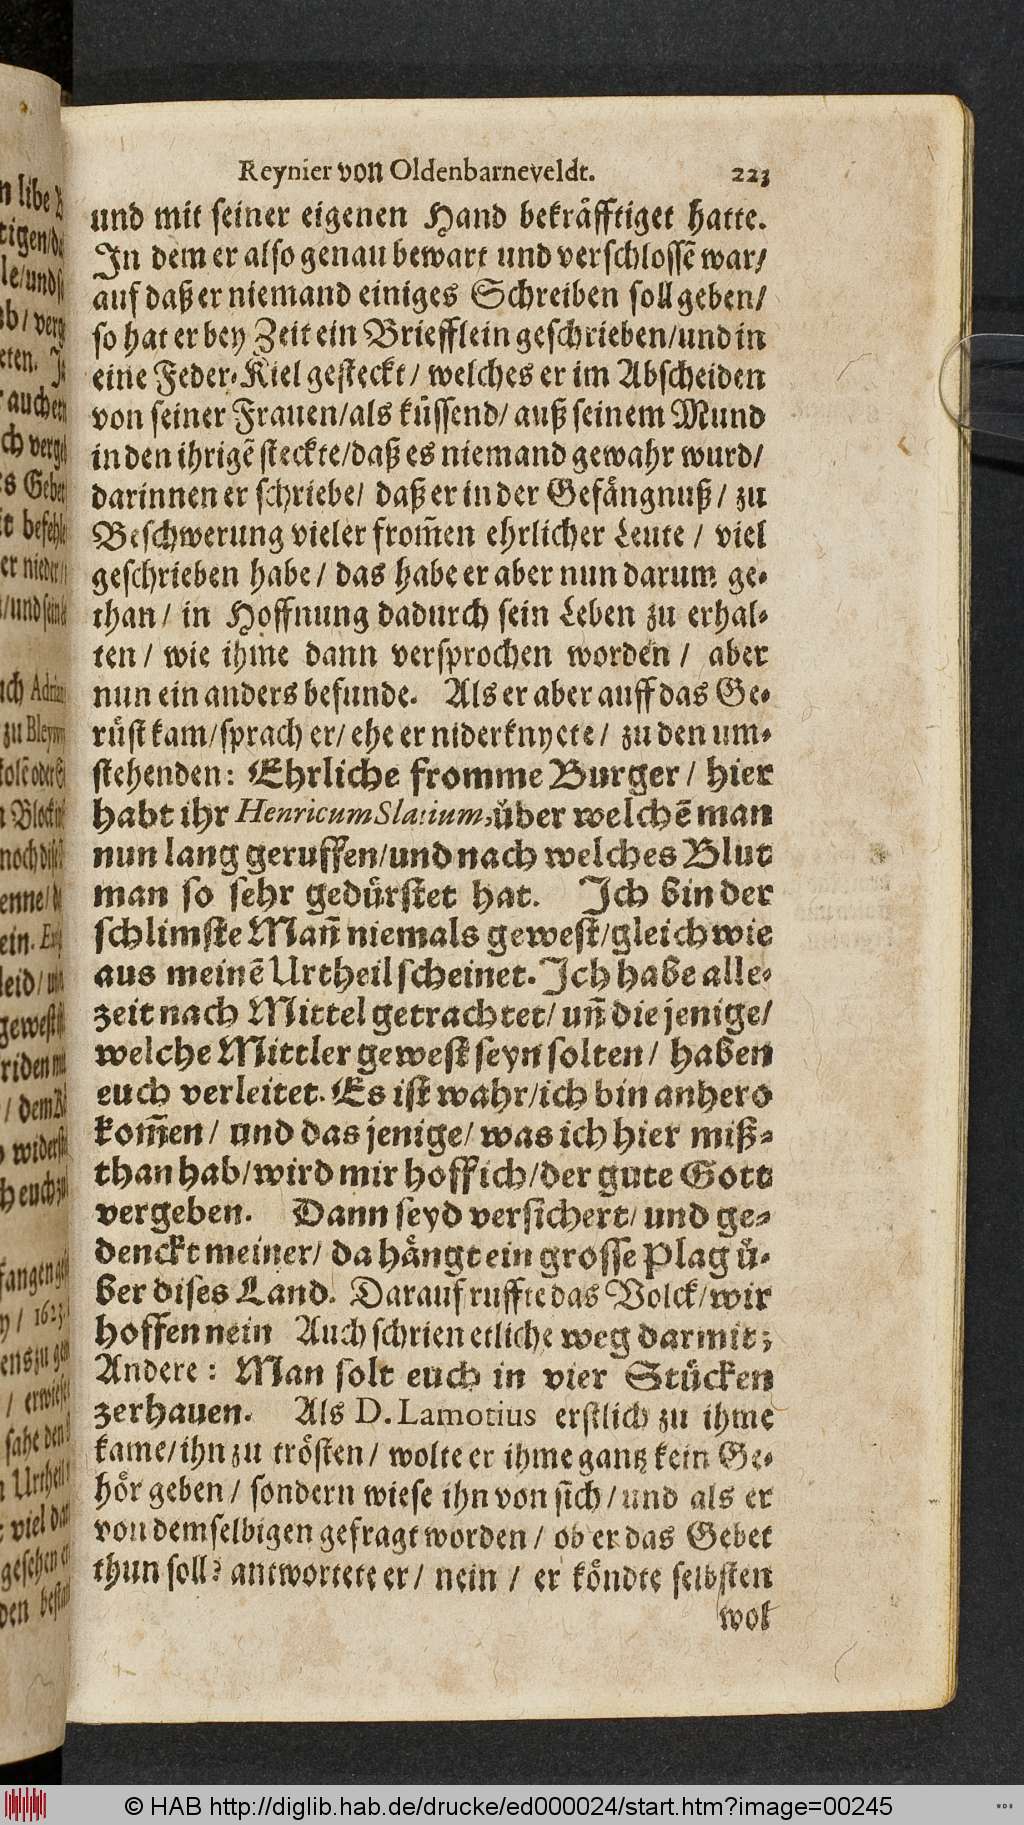 Reynier von Oldenbarneveldt. 223
und mit seiner eigenen Hand bekräfftiget hatte.
In dem er also genau bewart und verschlossẽ war/
auf daß er niemand einiges Schreiben soll geben/
so hat er bey Zeit ein Briefflein geschrieben/und in
eine Feder-Kiel gesteckt/ welches er im Abscheiden
von seiner Frauen/als küssend/ auß seinem Mund
in den ihrigẽ steckte/daß es niemand gewahr wurd/
darinnen er schriebe/ daß er in der Gefängnuß/ zu
Beschwerung vieler from̃en ehrlicher Leute/ viel
geschrieben habe/ das habe er aber nun darum ge-
than/ in Hoffnung dadurch sein Leben zu erhal-
ten/ wie ihme dann versprochen worden/ aber
nun ein anders befunde. Als er aber auff das Ge-
rüst kam/sprach er/ ehe er niderknyete/ zu den um-
stehenden: Ehrliche fromme Burger/ hier
habt ihr Henricum Slatium, über welchẽ man
nun lang geruffen/und nach welches Blut
man so sehr gedürstet hat. Ich bin der
schlimste Mañ niemals gewest/gleich wie
aus meinẽ Urtheil scheinet. Ich habe alle-
zeit nach Mittel getrachtet/ uñ die jenige/
welche Mittler gewest seyn solten/ haben
euch verleitet. Es ist wahr/ich bin anhero
kom̃en/ und das jenige/ was ich hier miß-
than hab/wird mir hoff ich/der gute Gott
vergeben. Dann seyd versichert/ und ge-
denckt meiner/ da hängt ein grosse Plag ü-
ber dises Land. Darauf ruffte das Volck/wir
hoffen nein Auch schrien etliche weg darmit;
Andere: Man solt euch in vier Stücken
zerhauen. Als D. Lamotius erstlich zu ihme
kame/ihn zu trösten/ wolte er ihme gantz kein Ge-
hör geben/ sondern wiese ihn von sich/und als er
von demselbigen gefragt worden/ ob er das Gebet
thun soll? antwortete er/ nein/ er köndte selbsten
wol
© HAB http://diglib.hab.de/drucke/ed000024/start.htm?image=00245